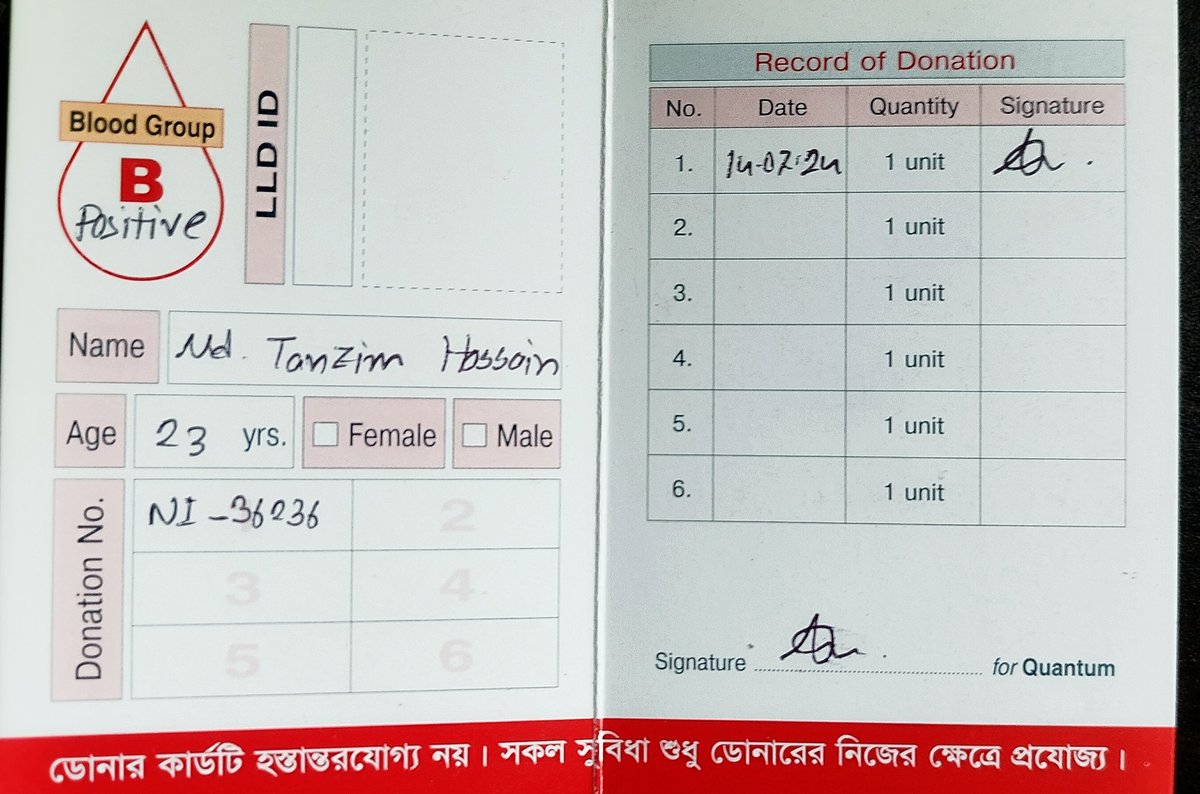 Blood Group
B
Positive
LLD ID
Name Md. Tanzim Hossain
Age 23 yrs. Female Male
Donation No.
NI-36236 2
3 4
5 6
Record of Donation
No. Date Quantity Signature
1. 14-07-24 1 unit
2. 1 unit
3. 1 unit
4. 1 unit
5. 1 unit
6. 1 unit
Signature for Quantum
ডোনার কার্ডটি হস্তান্তরযোগ্য নয়। সকল সুবিধা শুধু ডোনারের নিজের ক্ষেত্রে প্রযোজ্য।